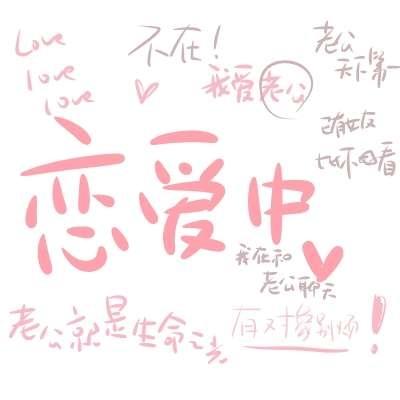 Love
love
love
不在！
我爱老公
老公
天下第一
已有女友
也不回看
恋爱中
我在和
老公聊天
老公就是生命之光
有对象别烦！